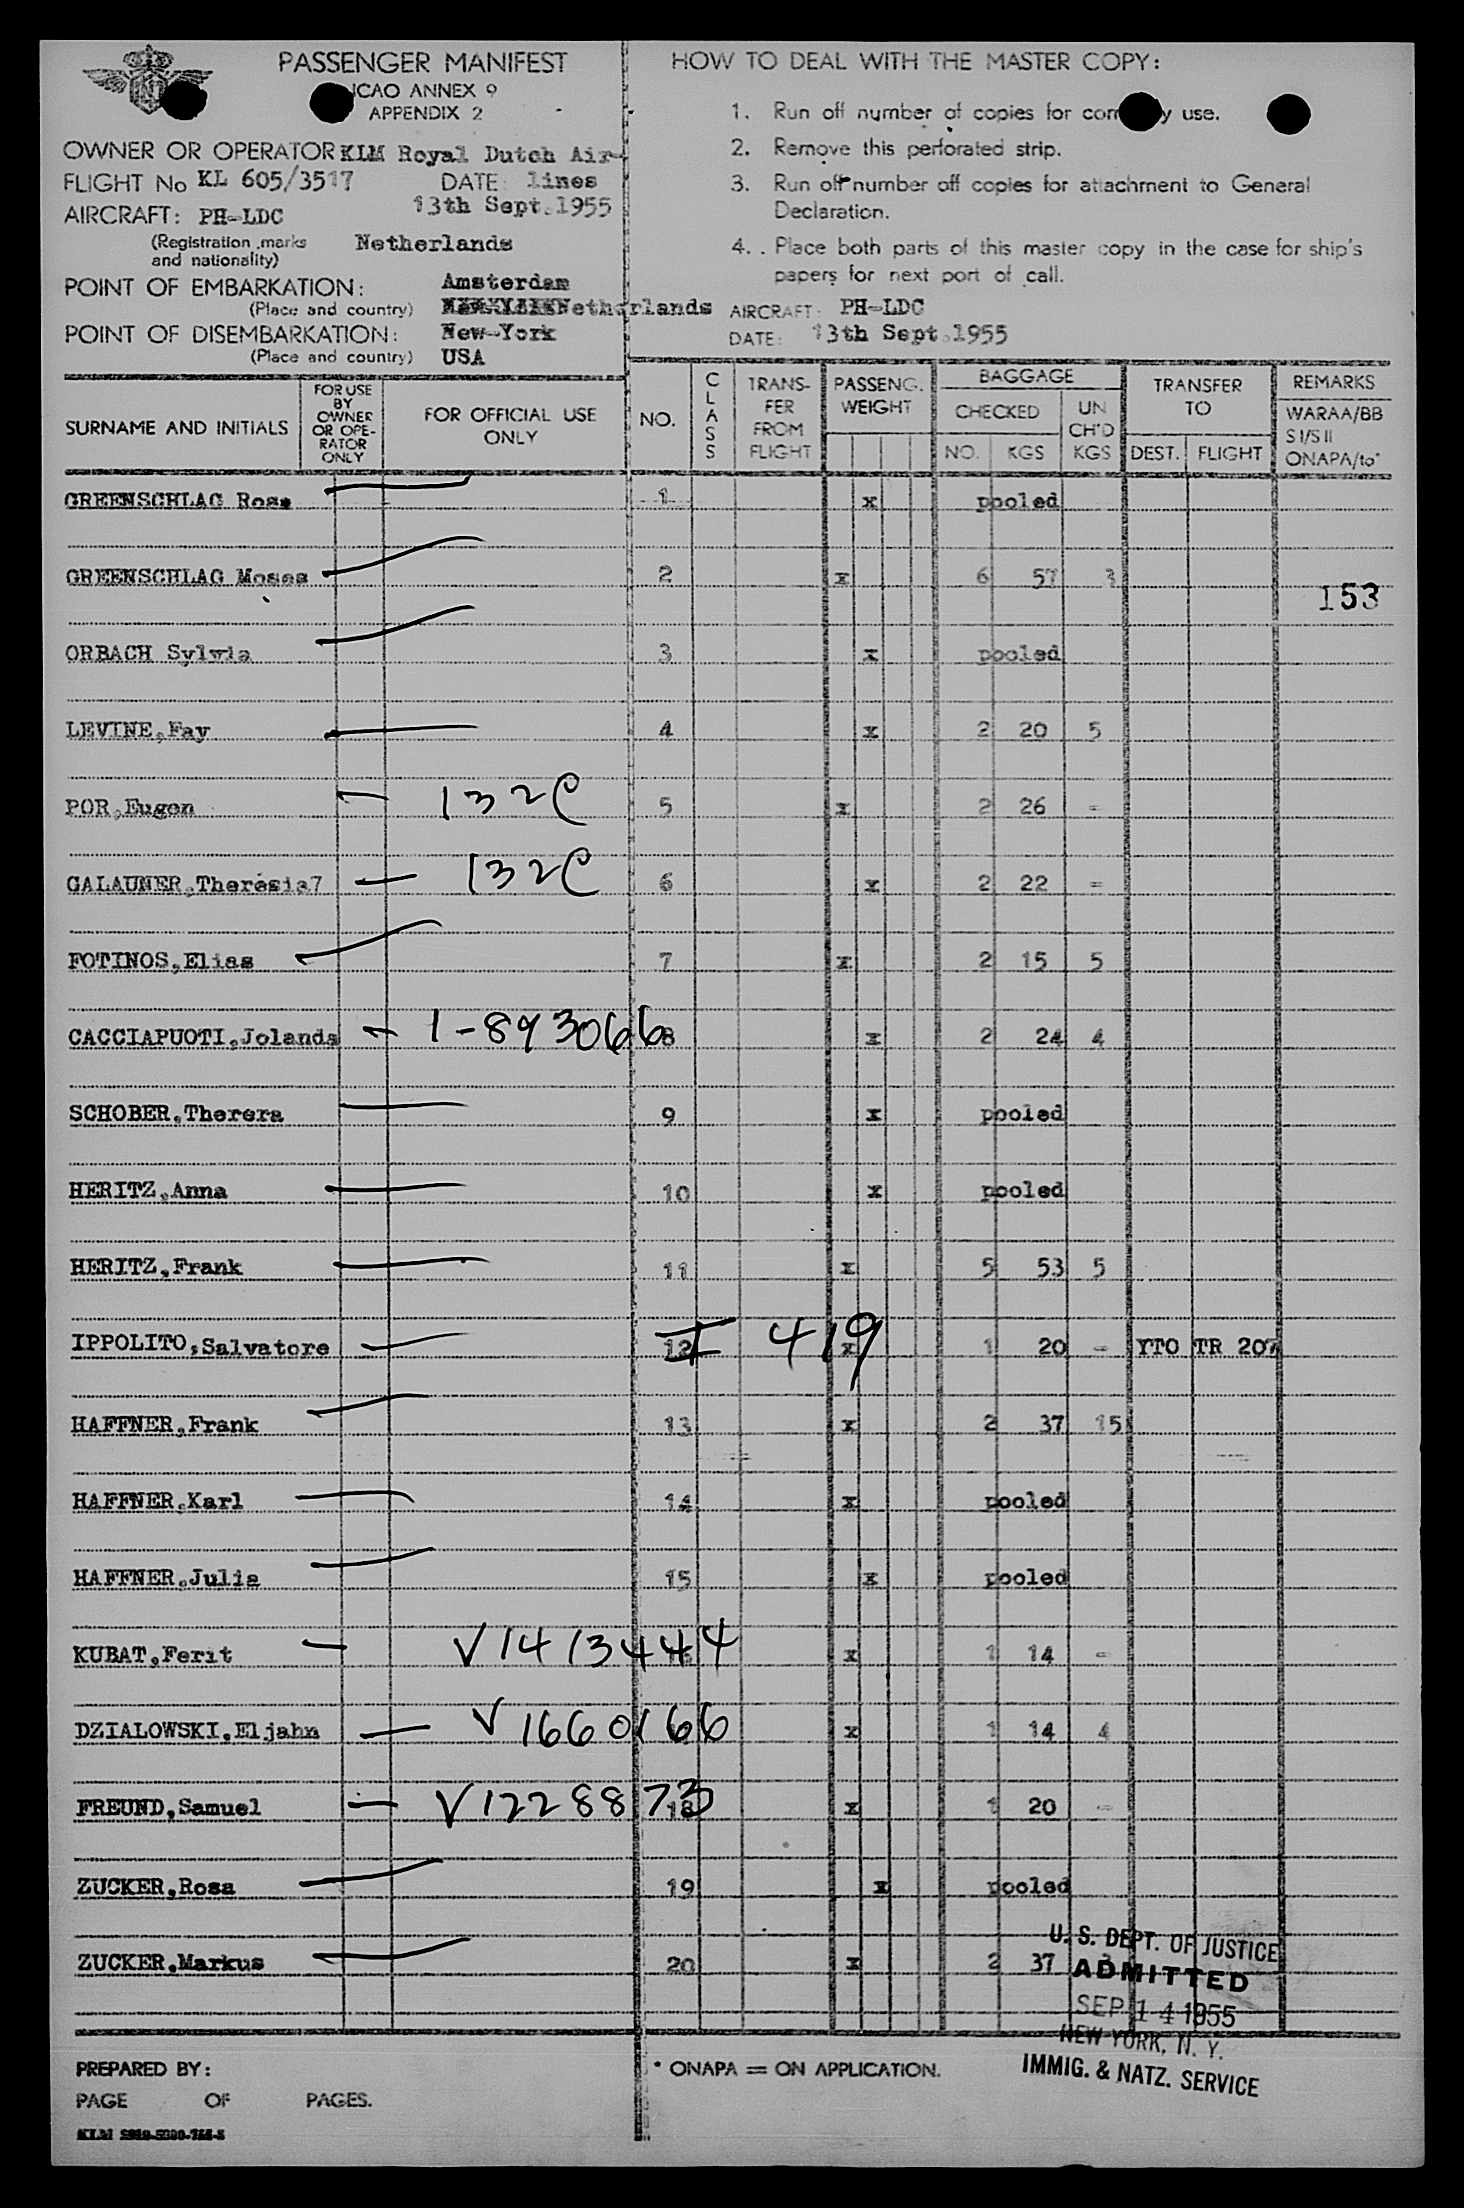 PASSENGER MANIFEST
ICAO ANNEX 9
APPENDIX 2
OWNER OR OPERATOR KLM Royal Dutch Air-
FLIGHT No KL 605/3517 DATE: lines
13th Sept.1955
AIRCRAFT: PH-LDC
(Registration marks Netherlands
and nationality)
POINT OF EMBARKATION: Amsterdam
(Place and country) Netherlands
POINT OF DISEMBARKATION: New-York
(Place and country) USA
HOW TO DEAL WITH THE MASTER COPY:
1. Run off number of copies for use.
2. Remove this perforated strip.
3. Run off number off copies for attachment to General
Declaration.
4. Place both parts of this master copy in the case for ship's
papers for next port of call.
AIRCRAFT: PH-LDC
DATE: 13th Sept.1955
SURNAME AND INITIALS FOR USE BY OWNER OR OPE-RATOR ONLY FOR OFFICIAL USE ONLY NO. CLASS TRANS-FER FROM FLIGHT PASSENG. WEIGHT BAGGAGE CHECKED NO. KGS UN CH'D KGS TRANSFER TO DEST. FLIGHT REMARKS WARAA/BB S I/S II ONAPA/to*
GREENSCHLAG Rosa 1 x pooled
GREENSCHLAG Moses 2 x 6 57 3
153
ORBACH Sylvia 3 x pooled
LEVINE,Fay 4 x 2 20 5
POR,Eugen 132C 5 x 2 26 =
GALAUNER,Theresia7 132C 6 x 2 22 =
FOTINOS,Elias 7 x 2 15 5
CACCIAPUOTI,Jolanda 1-893066 8 x 2 24 4
SCHOBER,Therera 9 x pooled
HERITZ,Anna 10 x pooled
HERITZ,Frank 11 x 5 53 5
IPPOLITO,Salvatore 12 I 419 x 1 20 - YTO TR 207
HAFFNER,Frank 13 x 2 37 15
HAFFNER,Karl 14 x pooled
HAFFNER,Julia 15 x pooled
KUBAT,Ferit V1413444 x 1 14 =
DZIALOWSKI,Eljahn V1660166 x 1 14 4
FREUND,Samuel V1228873 18 x 1 20 =
ZUCKER,Rosa 19 x pooled
ZUCKER,Markus 20 x 2 37
U. S. DEPT. OF JUSTICE
ADMITTED
SEP 14 1955
NEW YORK, N. Y.
IMMIG. & NATZ. SERVICE
PREPARED BY:
PAGE OF PAGES.
* ONAPA = ON APPLICATION.